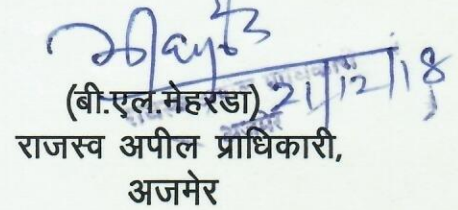 21/12/18
(बी.एल.मेहरडा)
राजस्व अपील प्राधिकारी,
अजमेर